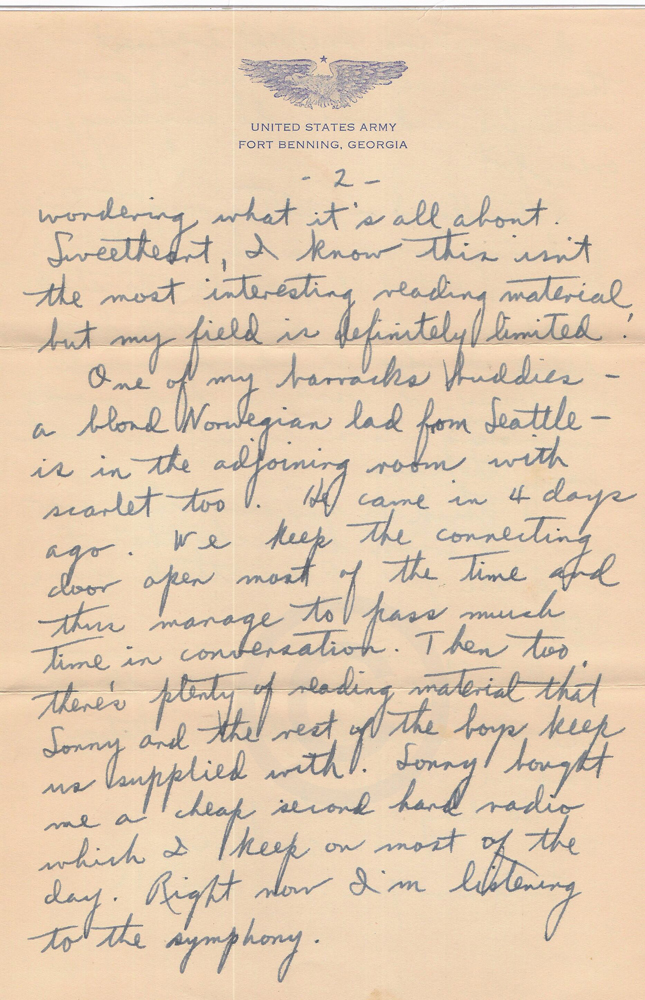 UNITED STATES ARMY
FORT BENNING, GEORGIA
- 2 -
wondering what it's all about.
Sweetheart, I know this isn't
the most interesting reading material,
but my field is definitely limited!
One of my barracks buddies -
a blond Norwegian lad from Seattle -
is in the adjoining room with
scarlet too. He came in 4 days
ago. We keep the connecting
door open most of the time and
thus manage to pass much
time in conversation. Then too,
there's plenty of reading material that
Sonny and the rest of the boys keep
us supplied with. Sonny bought
me a cheap second hand radio
which I keep on most of the
day. Right now I'm listening
to the symphony.